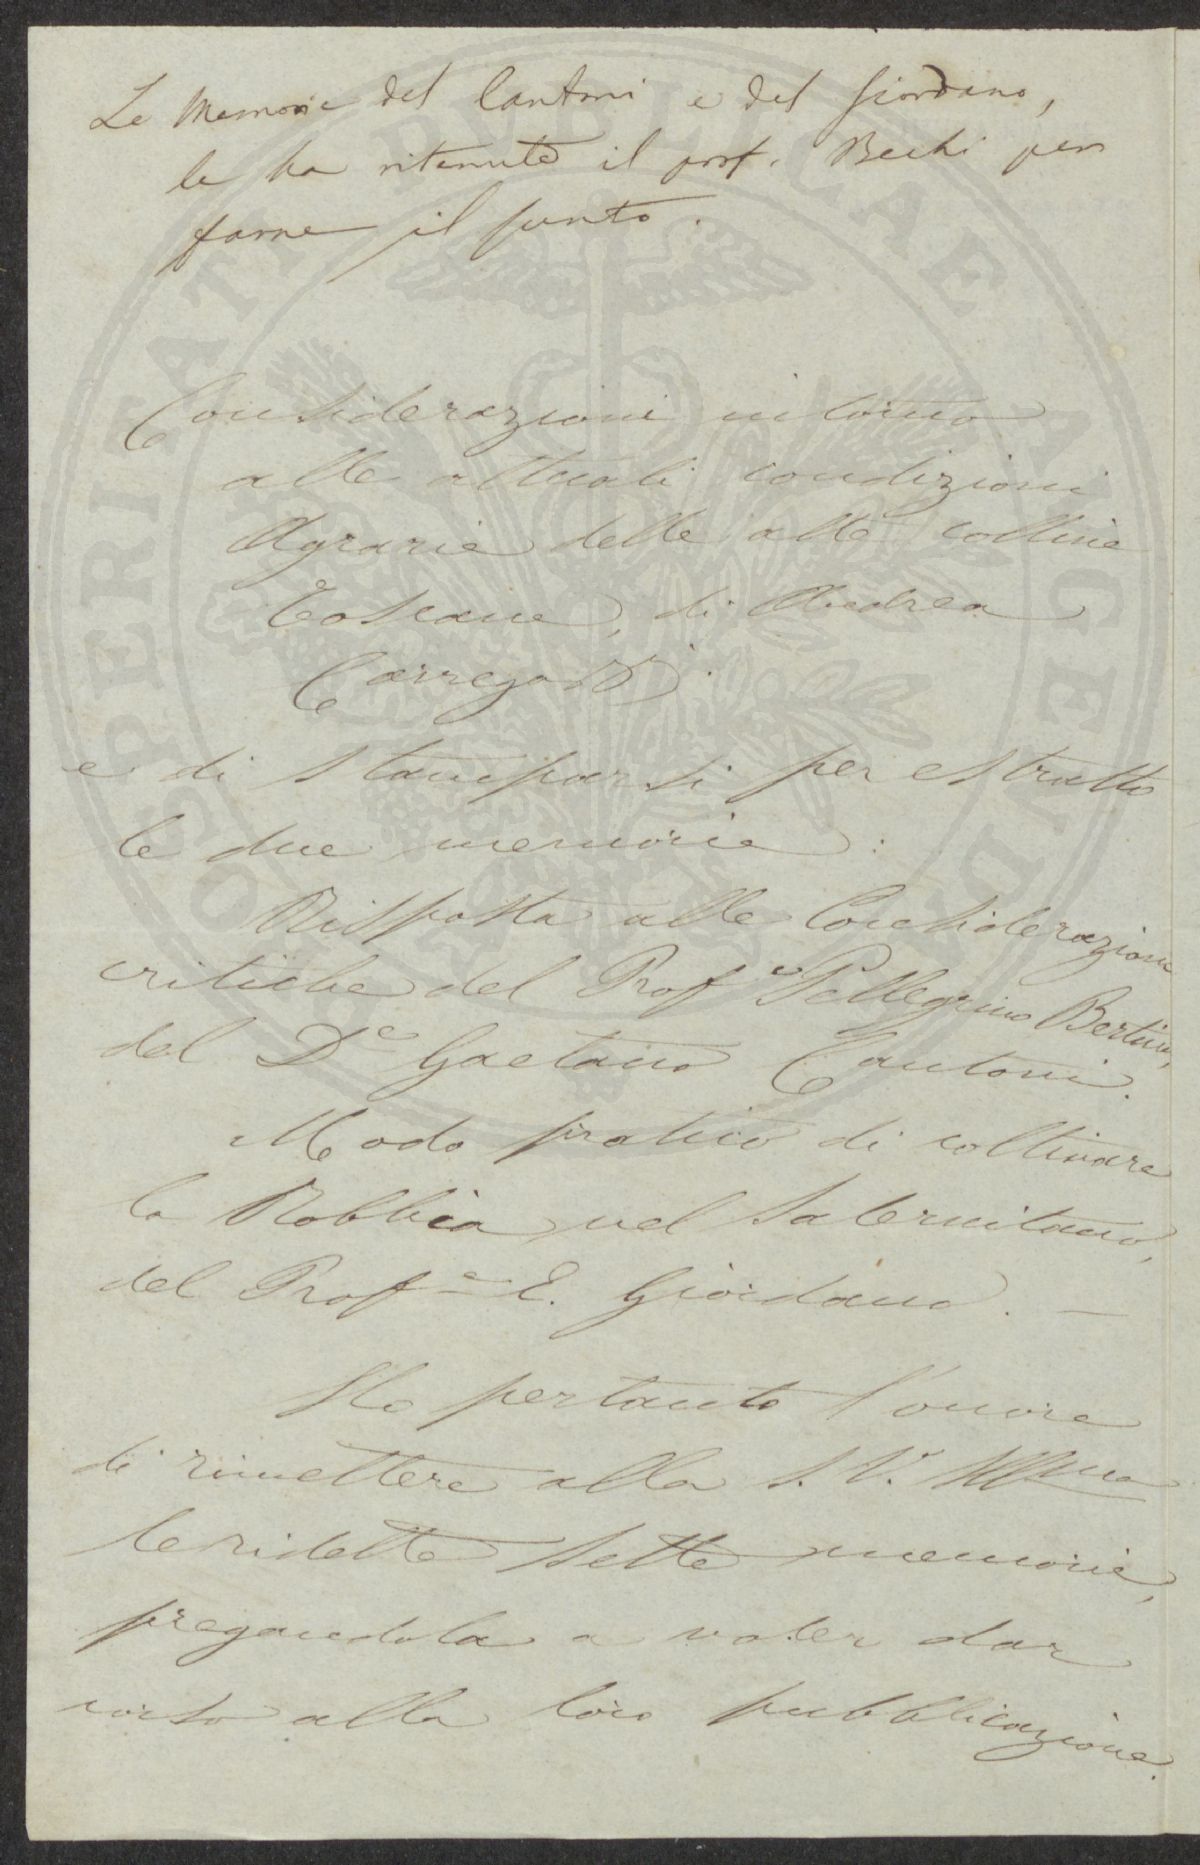 Le Memorie del Cantoni e del Giordano,
le ha ritenute il prof. Bechi per
farne il sunto.
Considerazioni intorno
alle attuali condizioni
Agrarie delle alte colline
Toscane, di Andrea
Carrega D.
e di stamparsi per estratto
le due memorie:
Risposta alle Considerazioni
critiche del Profe Pellegrino Bertini,
del De Gaetano Cantoni.
Modo pratico di coltivare
la Robbia nel Salernitano,
del Profe E. Giordano. —
Ho pertanto l'onore
di rimettere alla S. V. Illma
le ridette sette memorie,
pregandola a voler dar
corso alla loro pubblicazione.
PROSPERITATI PUBLICAE AUGENDAE